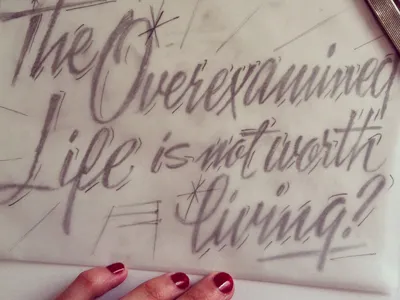 The
Overexamined
Life is not worth
living?